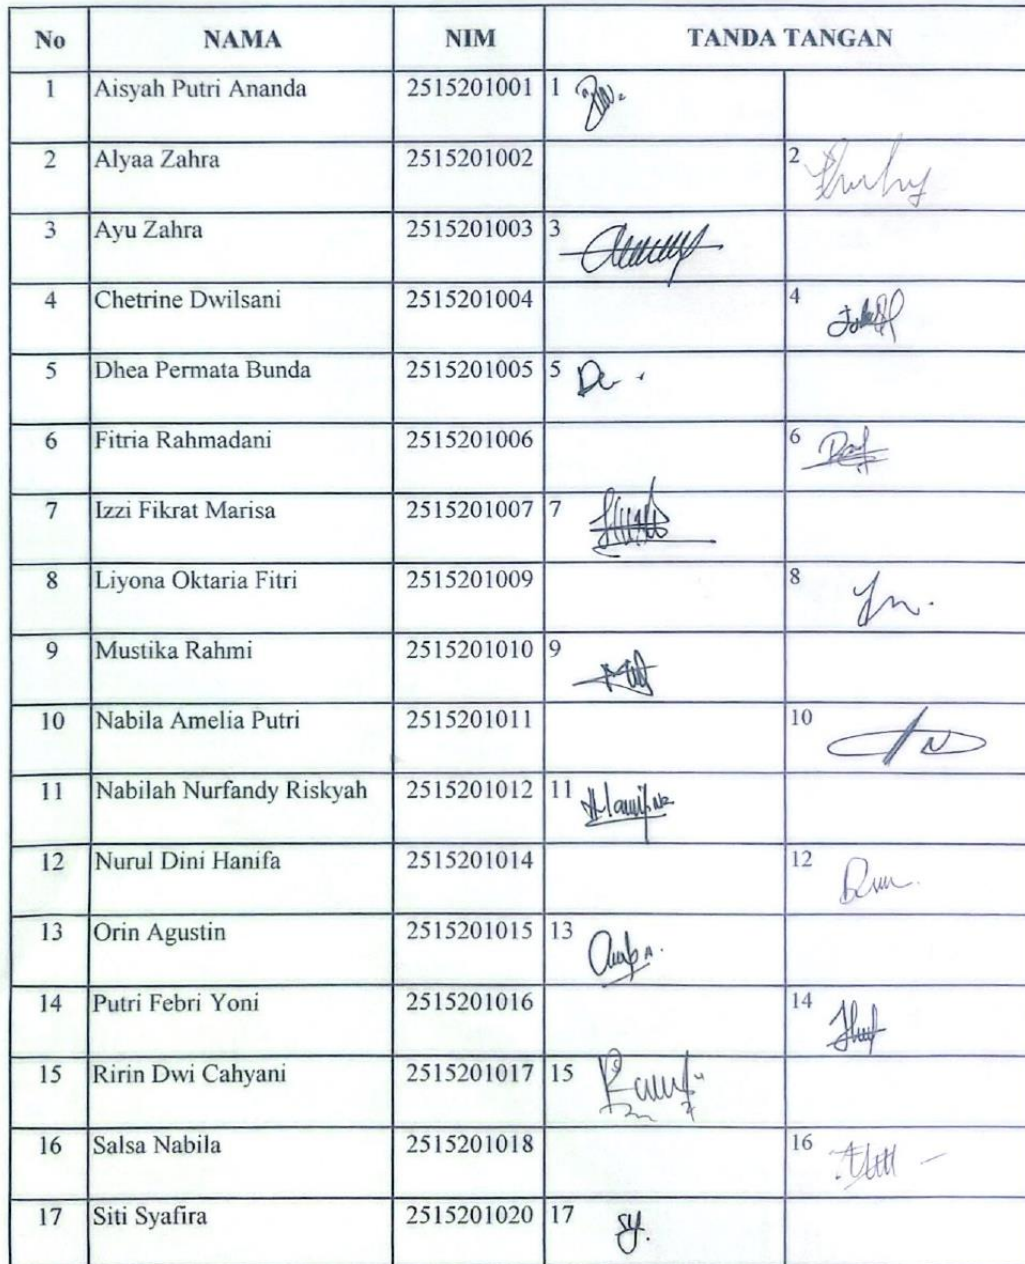 No NAMA NIM TANDA TANGAN
1 Aisyah Putri Ananda 2515201001 1
2 Alyaa Zahra 2515201002 2
3 Ayu Zahra 2515201003 3
4 Chetrine Dwilsani 2515201004 4
5 Dhea Permata Bunda 2515201005 5
6 Fitria Rahmadani 2515201006 6
7 Izzi Fikrat Marisa 2515201007 7
8 Liyona Oktaria Fitri 2515201009 8
9 Mustika Rahmi 2515201010 9
10 Nabila Amelia Putri 2515201011 10
11 Nabilah Nurfandy Riskyah 2515201012 11
12 Nurul Dini Hanifa 2515201014 12
13 Orin Agustin 2515201015 13
14 Putri Febri Yoni 2515201016 14
15 Ririn Dwi Cahyani 2515201017 15
16 Salsa Nabila 2515201018 16
17 Siti Syafira 2515201020 17 sy.